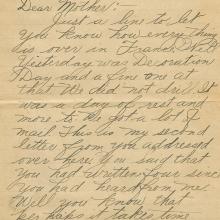 Dear Mother:
Just a line to let
you know how everything
is over in France
Yesterday was Decoration
Day and a fine one at
that We did not drill. It
was a day of rest and
more to me got a lot of
mail. This is my second
letter from you addressed
over here. You said that
you had written four since
you had heard from me.
Will you know that
perhaps it takes time